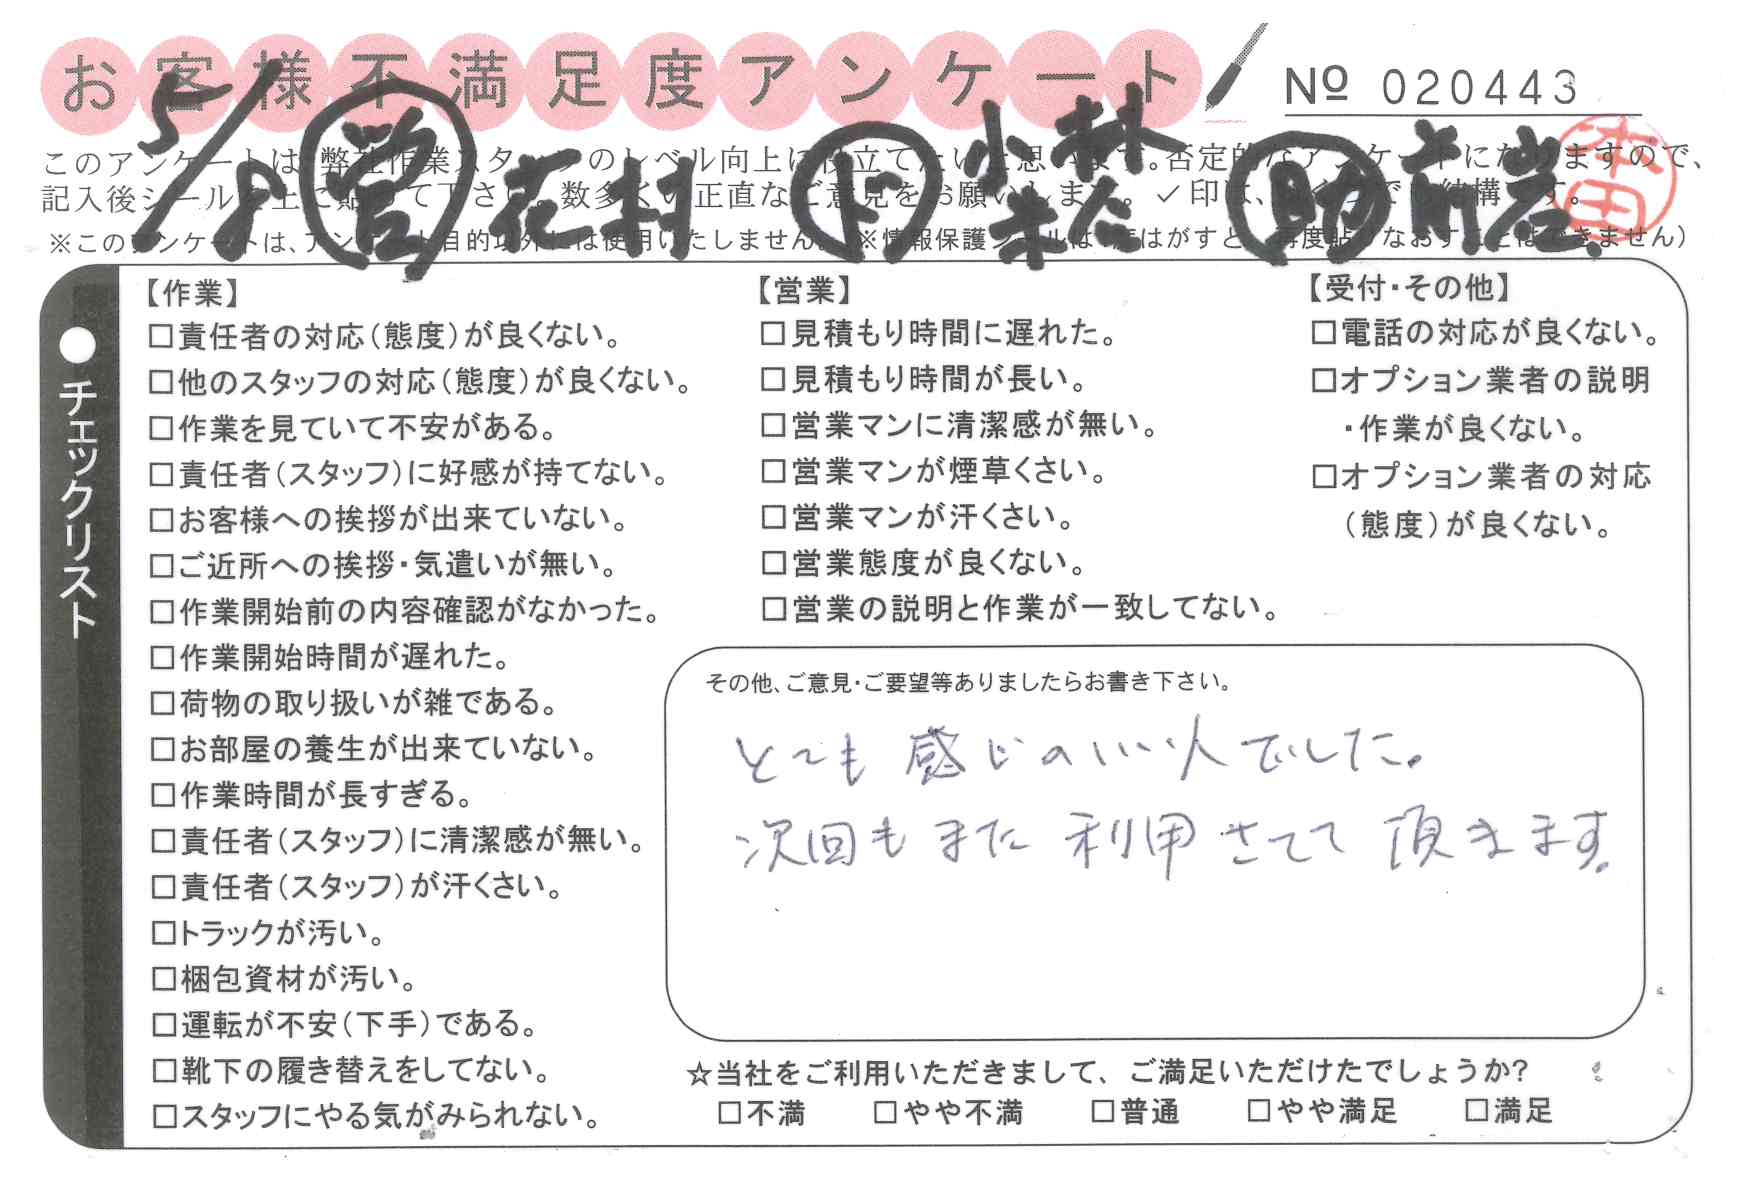 お客様不満足度アンケート
№ 020443
5/8 営 花村 ド 小林 助 前岩
本田
このアンケートは、弊社作業スタッフのレベル向上に役立てたいと思います。否定的なアンケートになりますので、
記入後シールを上に貼って下さい。数多くの正直なご意見をお願いします。✓印は、いくつでも結構です。
※このアンケートは、アンケート目的以外には使用いたしません。(※情報保護シールは1度はがすと、再度貼りなおすことはできません)
●チェックリスト
【作業】
□責任者の対応(態度)が良くない。
□他のスタッフの対応(態度)が良くない。
□作業を見ていて不安がある。
□責任者(スタッフ)に好感が持てない。
□お客様への挨拶が出来ていない。
□ご近所への挨拶・気遣いが無い。
□作業開始前の内容確認がなかった。
□作業開始時間が遅れた。
□荷物の取り扱いが雑である。
□お部屋の養生が出来ていない。
□作業時間が長すぎる。
□責任者(スタッフ)に清潔感が無い。
□責任者(スタッフ)が汗くさい。
□トラックが汚い。
□梱包資材が汚い。
□運転が不安(下手)である。
□靴下の履き替えをしてない。
□スタッフにやる気がみられない。
【営業】
□見積もり時間に遅れた。
□見積もり時間が長い。
□営業マンに清潔感が無い。
□営業マンが煙草くさい。
□営業マンが汗くさい。
□営業態度が良くない。
□営業の説明と作業が一致してない。
【受付・その他】
□電話の対応が良くない。
□オプション業者の説明
・作業が良くない。
□オプション業者の対応
(態度)が良くない。
その他、ご意見・ご要望等ありましたらお書き下さい。
とても感じのいい人でした。
次回もまた利用させて頂きます。
☆当社をご利用いただきまして、ご満足いただけたでしょうか?
□不満 □やや不満 □普通 □やや満足 □満足